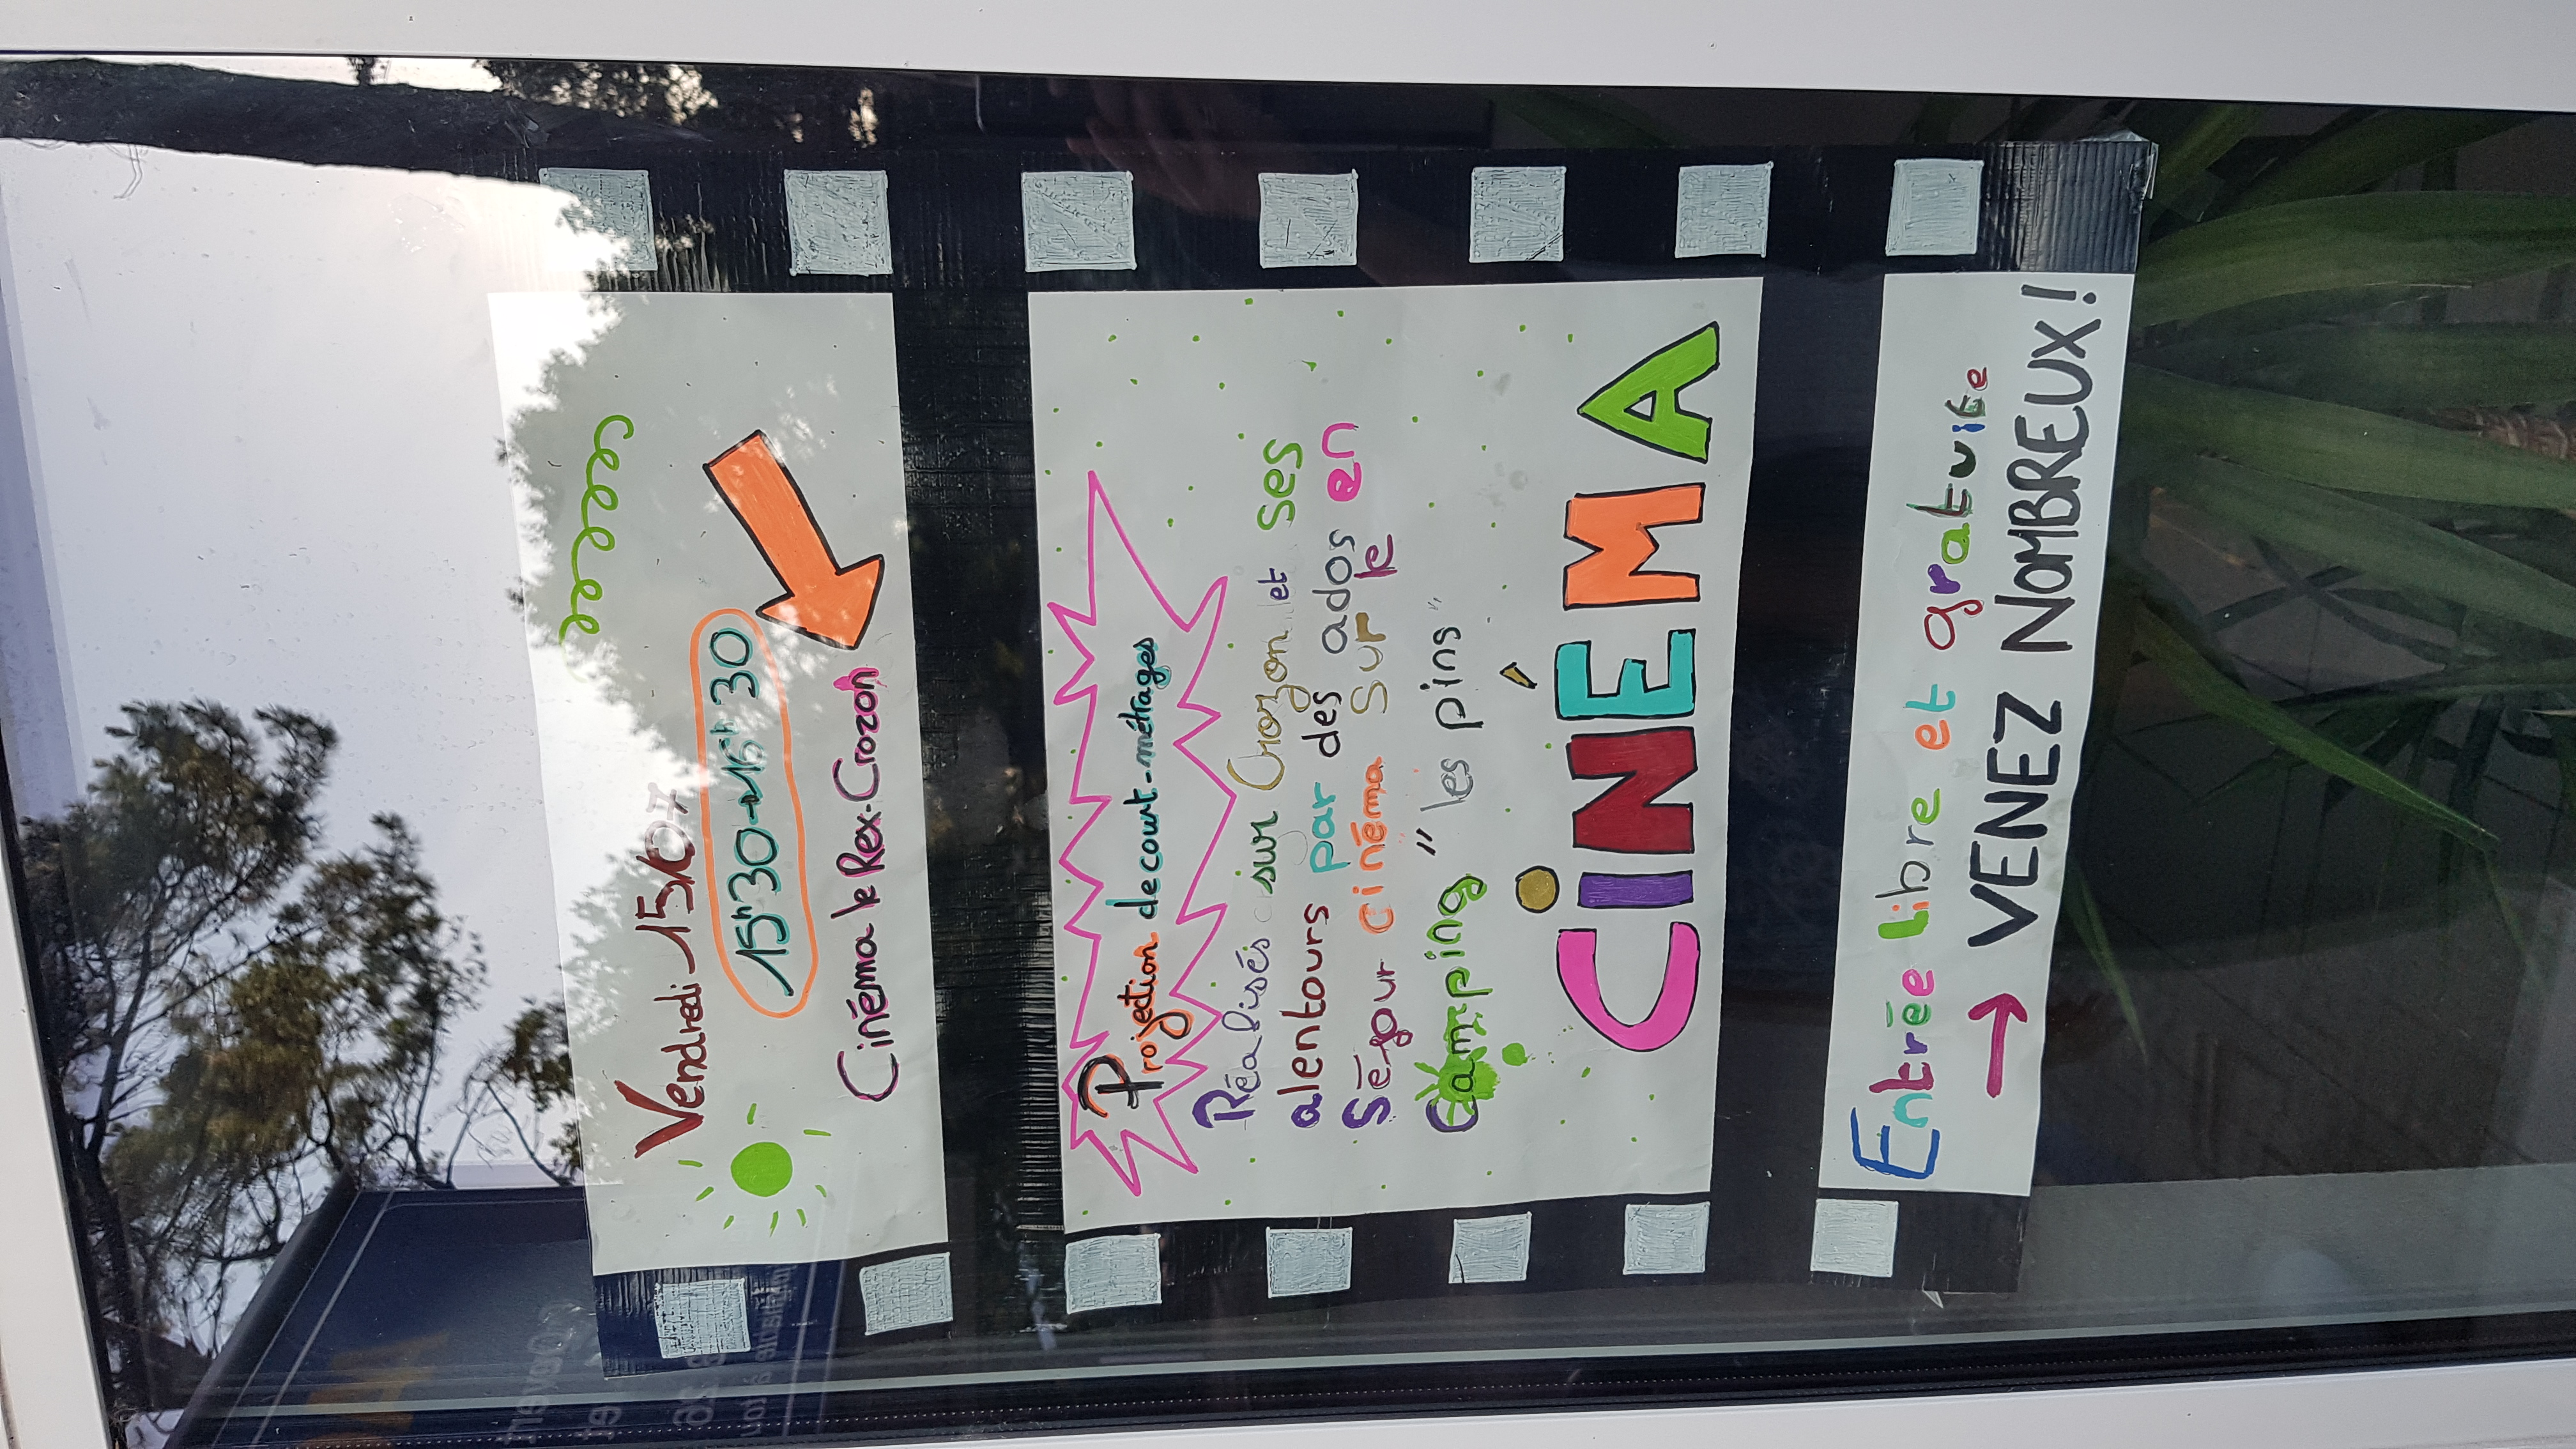 Vendredi 15/07
15h30-16h30
Cinéma le Rex-Crozon
Projection de court-métrages
Réalisés sur Crozon et ses
alentours par des ados en
Séjour cinéma sur le
Camping "les pins"
CINÉMA
Entrée libre et gratuite
→ VENEZ NOMBREUX!